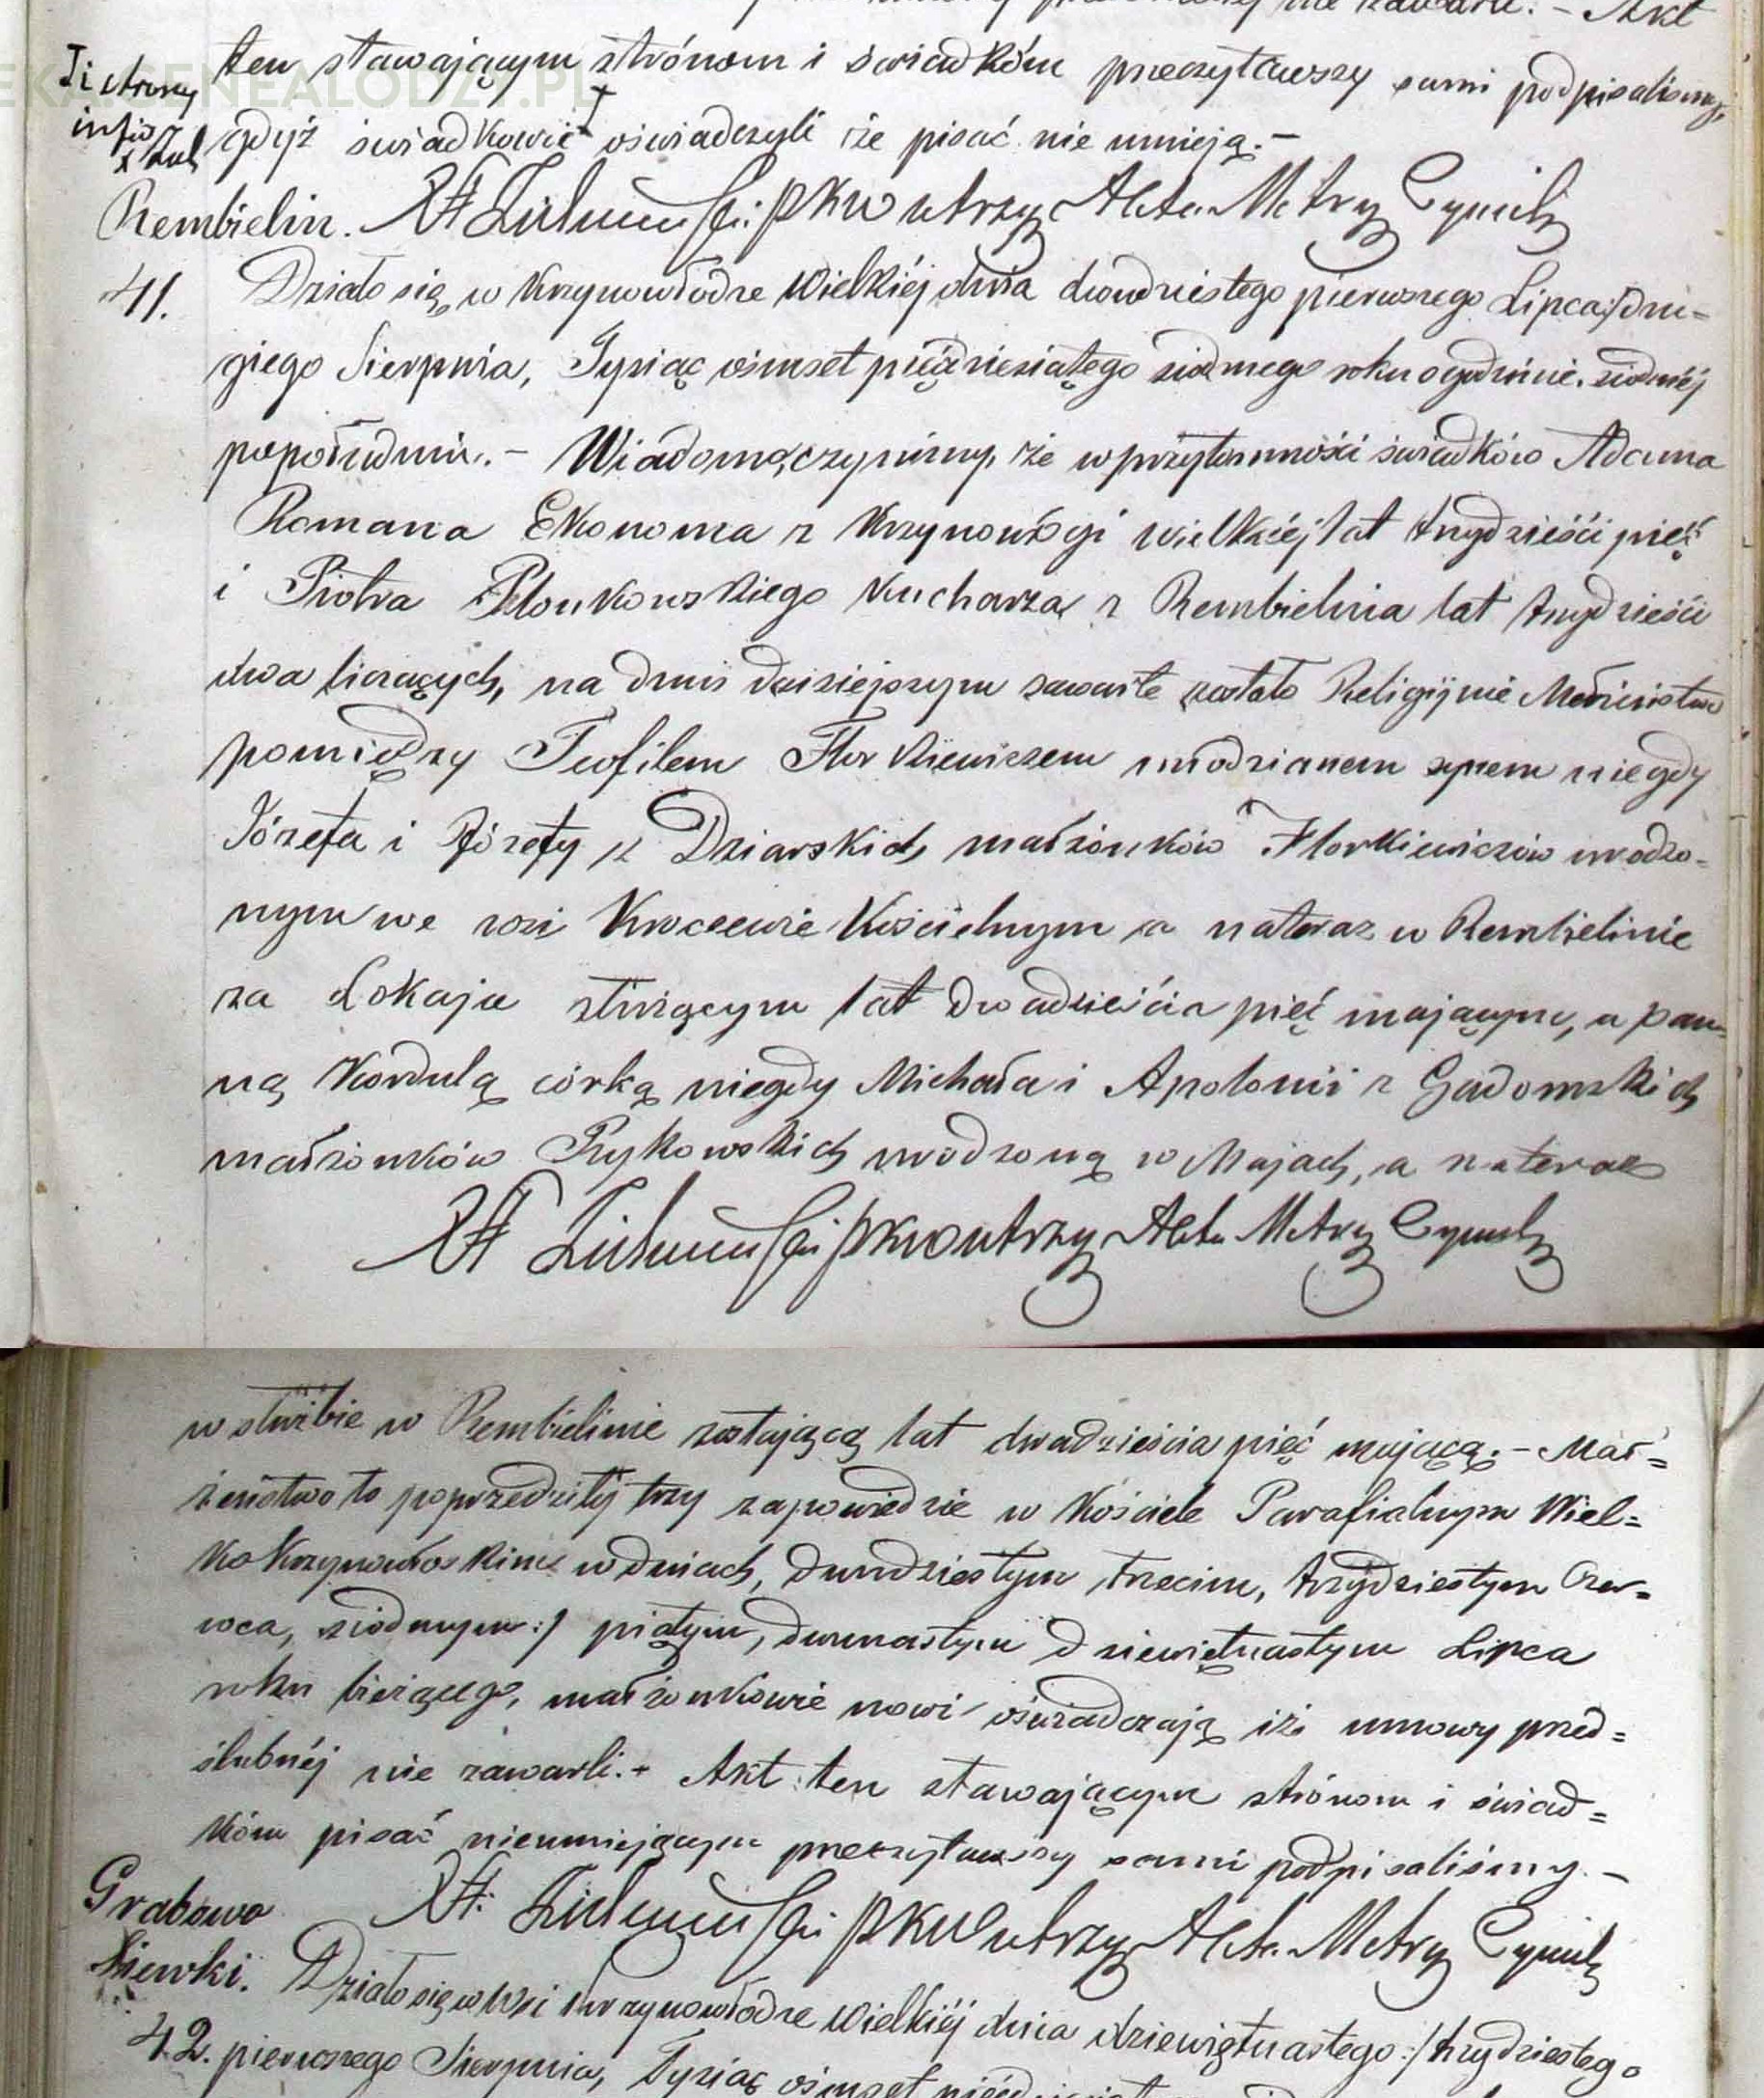 nie zawarli. – Akt
ten stawającym strónom i świadkóm przeczytawszy sami podpisaliśmy,
gdyż świadkowie oświadczyli że pisać nie umieją. –
I i strony
EKA.GENEALODZY.PL
Rembielin.
41. Działo się w Krzynowłodze Wielkiéj dnia dwudziestego pierwszego Lipca:/dru-
giego Sierpnia, Tysiąc ośmset pięćdziesiątego siódmego roku o godzinie siódméj
popołudniu. – Wiadomo czynimy, że w przytomności świadków Adama
Romana Ekonoma z Krzynowłogi wielkiéj lat trzydzieści pięć
i Piotra Płonkowskiego Kucharza z Rembielina lat trzydzieści
dwa liczących, na dniu dzisiejszym zawarte zostało Religijnie Małżeństwo
pomiędzy Teofilem Florkiewiczem młodzianem synem niegdy
Józefa i Józefy z Dziarskich małżonków Florkiewiczów urodzo-
nym we wsi Kroczewie Kościelnym a nateraz w Rembielinie
za Lokaja służącym lat dwadzieścia pięć mającym, a pan-
ną Kordulą córką niegdy Michała i Apolonii z Gadomskich
małżonków Rykowskich urodzoną w Majach, a nateraz
w służbie w Rembielinie zostającą lat dwadzieścia pięć mającą. – Mał=
żeństwo to poprzedziły trzy zapowiedzie w Kościele Parafialnym Wiel=
ko Krzynowłoskim w dniach, dwudziestym trzecim, trzydziestym Czer=
wca, siódmym:/ piątym, dwunastym dziewiętnastym Lipca
roku bieżącego, małżonkowie nowi oświadczają iż umowy przed=
ślubnéj nie zawarli. – Akt ten stawającym strónom i świad=
kóm pisać nieumiejącym przeczytawszy sami podpisaliśmy. –
Grabowo
Działo się w Wsi Krzynowłodze Wielkiéj dnia dziewiętnastego:/trzydziestego
42. pierwszego Sierpnia, Tysiąc ośmset